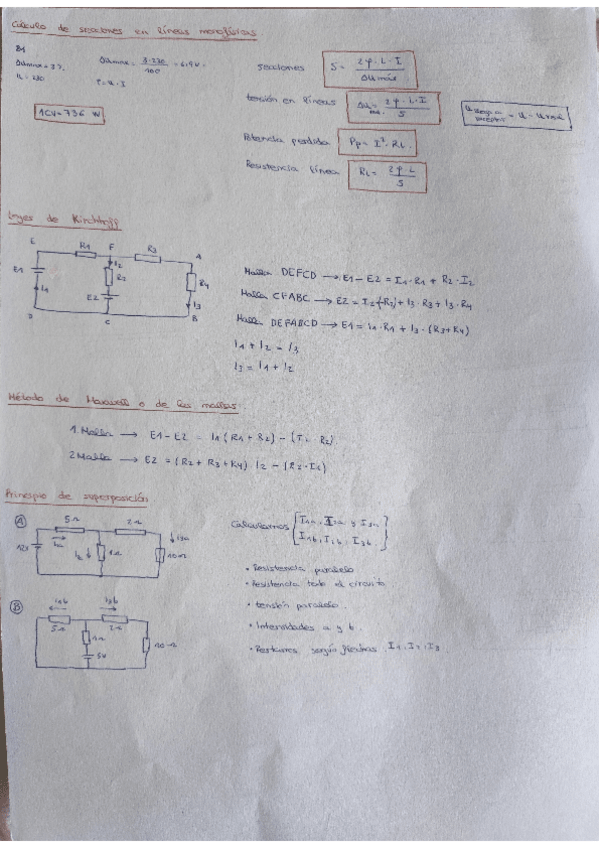 Cálculo de secciones en líneas monofásicas
ΔUmax = 3%.
ΔUmax = 3·230 / 100 = 6,9 V.
U = 230
P = U · I
1CV = 736 W
secciones S = 2φ · L · I / ΔUmáx
tensión en líneas ΔU máx. = 2φ · L · I / S
Potencia perdida Pp = I² · RL.
Resistencia línea RL = 2φ · L / S
Leyes de Kirchhoff
E R1 F R3 A
E1 I1 I2 R2 E2 R4 I3
D C B
Malla DEFCD → E1 - E2 = I1 · R1 + R2 · I2
Malla CFABC → E2 = I2 (-R2) + I3 · R3 + I3 · R4
Malla DEFABCD → E1 = I1 · R1 + I3 · (R3+R4)
I1 + I2 = I3
I3 = I1 + I2
Método de Maxwell o de las mallas.
1.Malla → E1 - E2 = I1 (R1 + R2) - (I2 · R2)
2.Malla → E2 = (R2 + R3 + R4) I2 - (R2 · I1)
Principio de superposición
A
5Ω 2Ω
12V 1Ω 10Ω
B
5Ω 1Ω 2Ω
5V 10Ω
Calculamos I1a, I2a y I3a
I1b, I2b, I3b.
• Resistencia paralelo
• Resistencia todo el circuito
• tensión paralelo.
• Intensidades a y b.
• Restamos según flechas I1, I2, I3